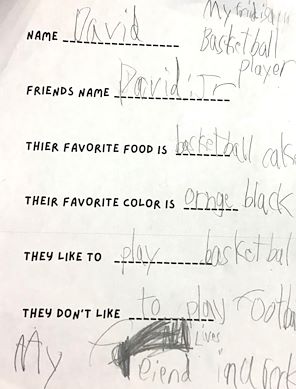 My frid is a
NAME David
Basketball
player
FRIENDS NAME David Jr
THIER FAVORITE FOOD IS basketball cake
THEIR FAVORITE COLOR IS ornge black
THEY LIKE TO play basketbal
THEY DON'T LIKE to play footba
Lives
My